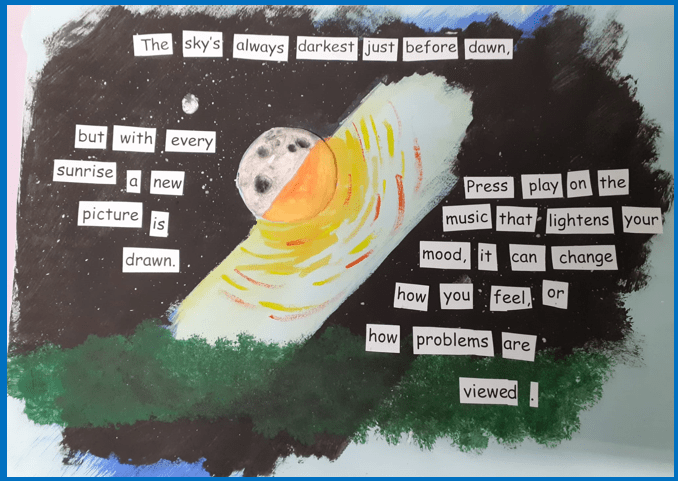 The sky's always darkest just before dawn,
but with every
sunrise a new
picture is
drawn.
Press play on the
music that lightens your
mood, it can change
how you feel, or
how problems are
viewed.